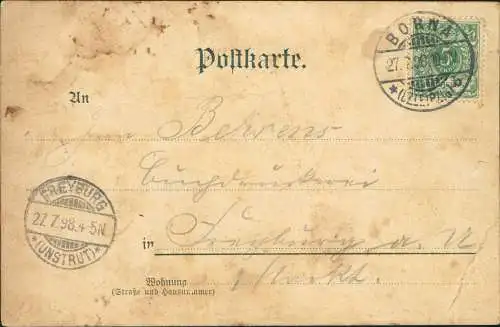 BORNA
27.7.98
*(BZ. LEIPZIG)
5
Postkarte.
An
Herrn Behrens
Buchdruckerei
FREYBURG
27.7.98.4-5N
*(UNSTRUT)*
in Freyburg a. U
Markt.
Wohnung
(Straße und Hausnummer)